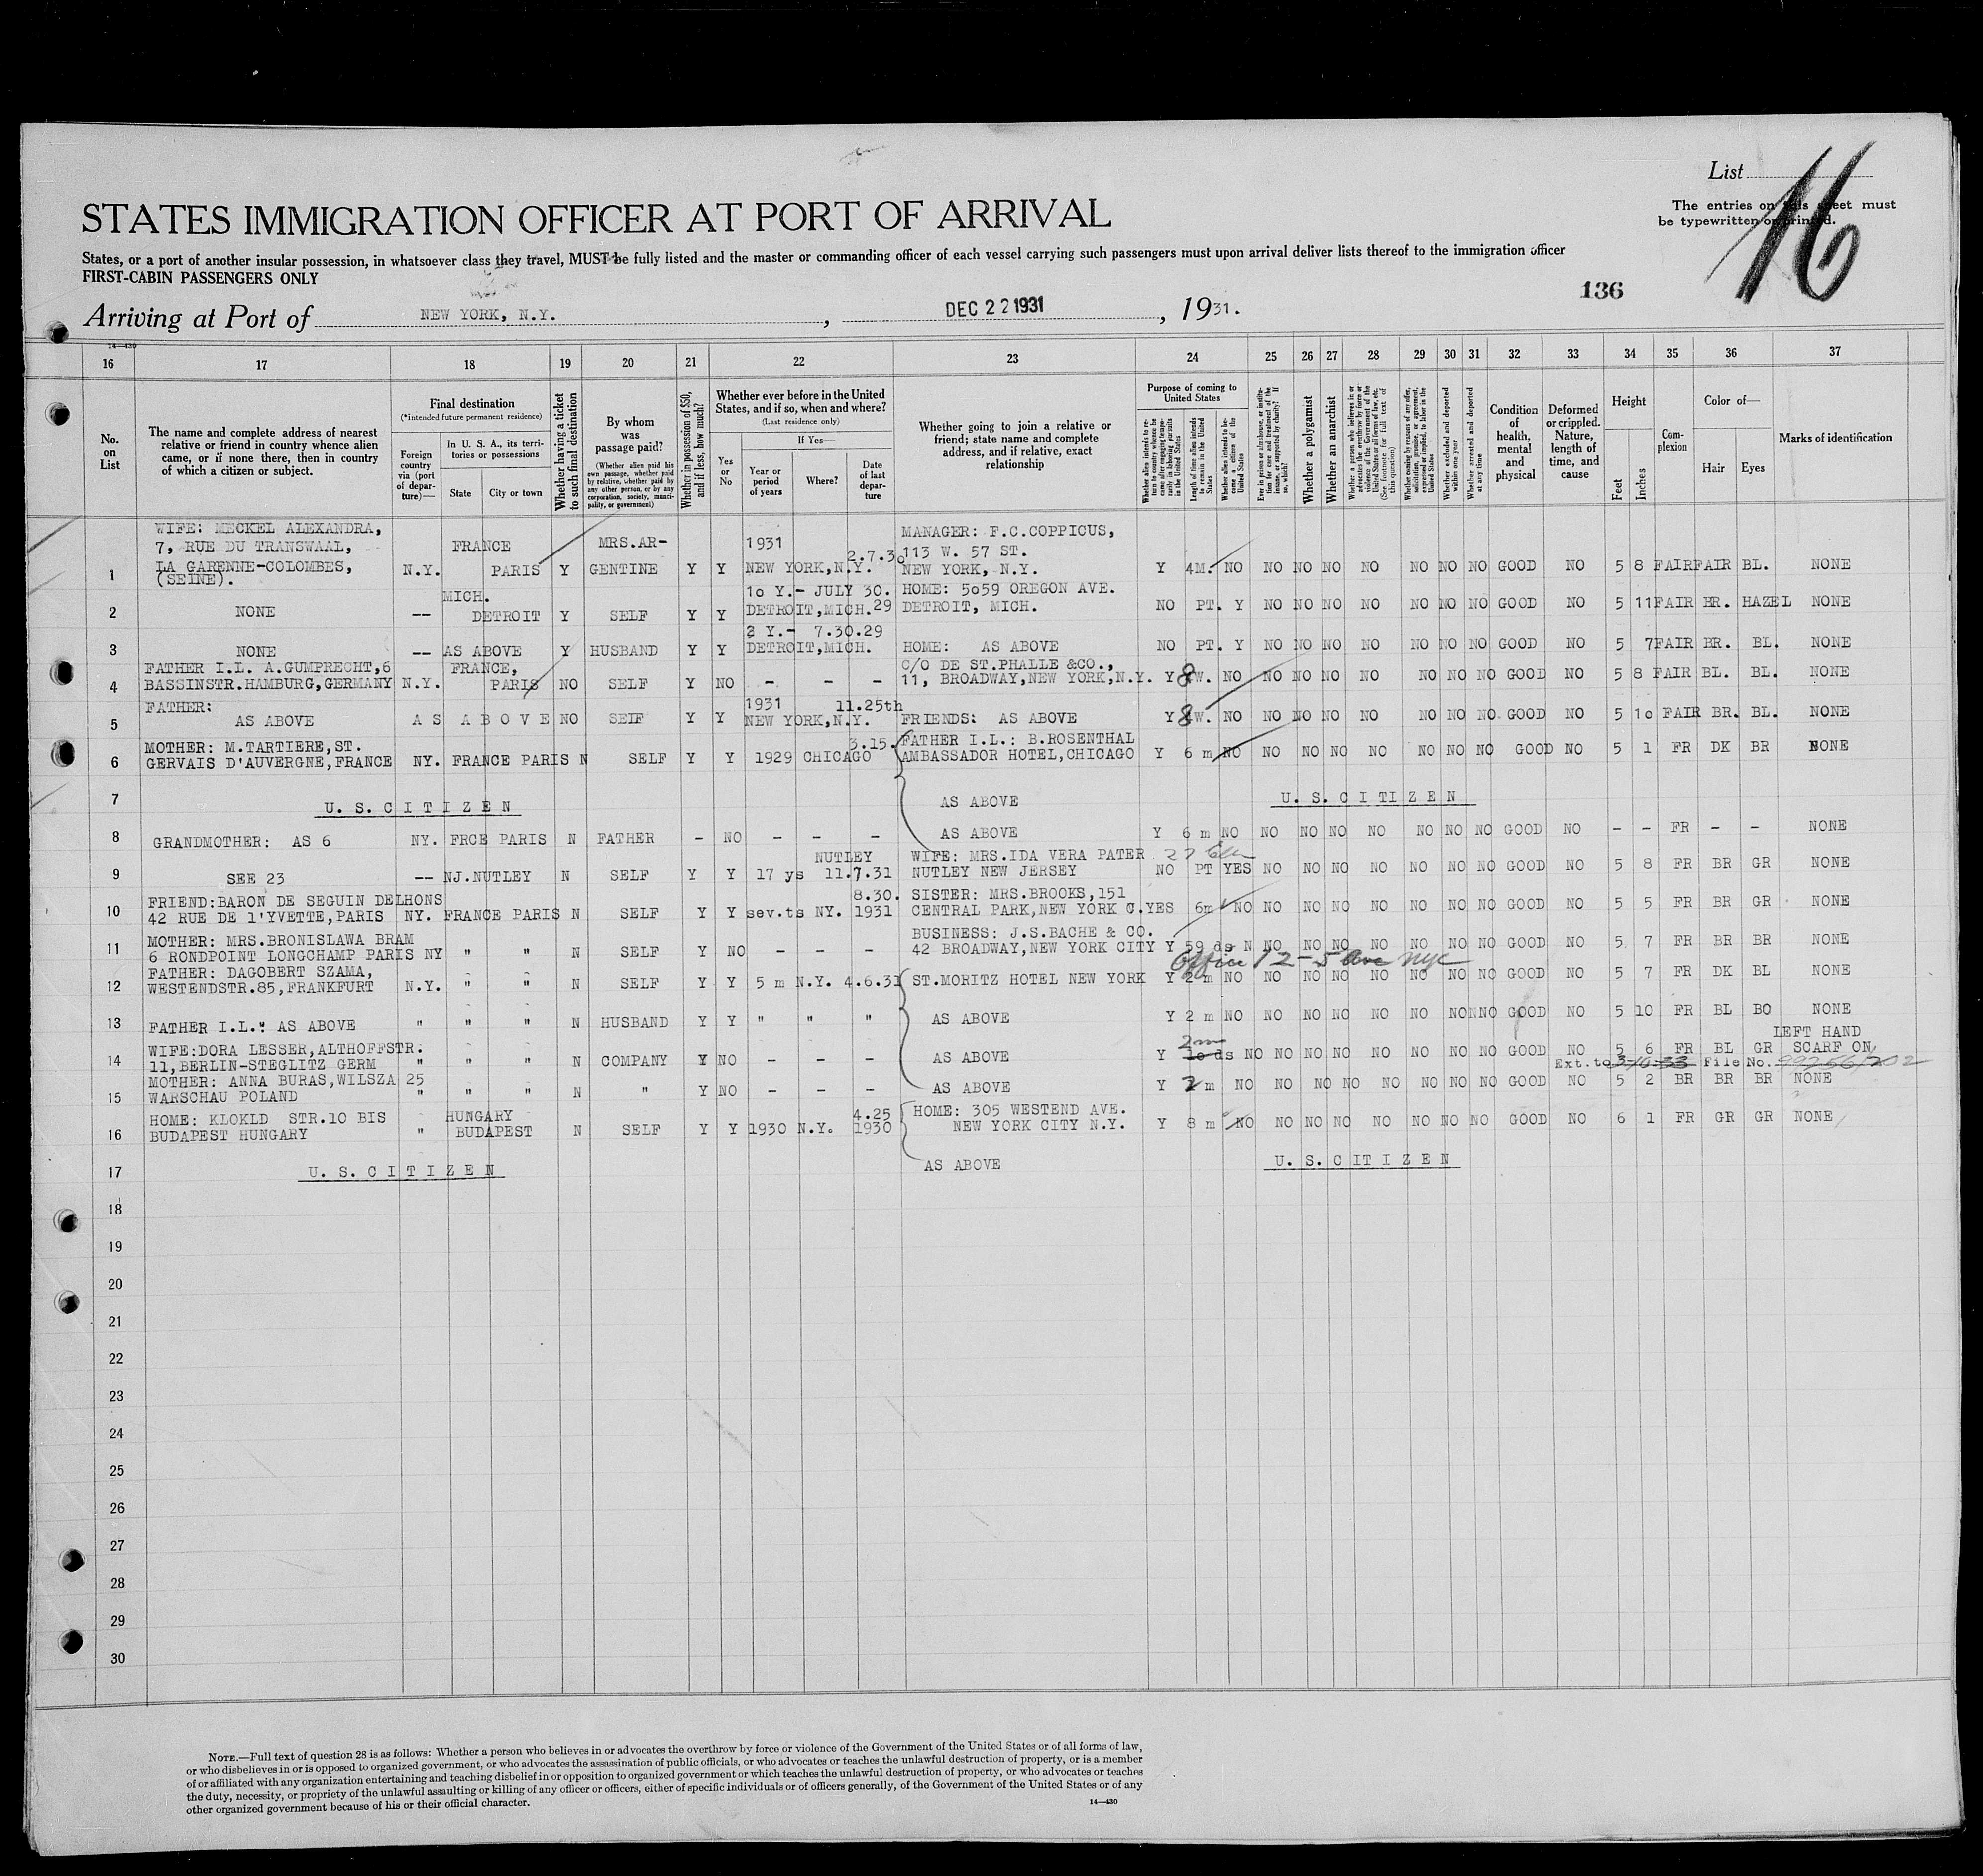 List
16
The entries on this sheet must
be typewritten or printed.
STATES IMMIGRATION OFFICER AT PORT OF ARRIVAL
States, or a port of another insular possession, in whatsoever class they travel, MUST be fully listed and the master or commanding officer of each vessel carrying such passengers must upon arrival deliver lists thereof to the immigration officer
FIRST-CABIN PASSENGERS ONLY
136
Arriving at Port of NEW YORK, N.Y. , DEC 22 1931 , 1931.
14—430
16 17 18 19 20 21 22 23 24 25 26 27 28 29 30 31 32 33 34 35 36 37
No. on List
The name and complete address of nearest relative or friend in country whence alien came, or if none there, then in country of which a citizen or subject.
Final destination
(*Intended future permanent residence)
Foreign country via (port of departure)—
In U. S. A., its territories or possessions
State
City or town
Whether having a ticket to such final destination
By whom was passage paid?
(Whether alien paid his own passage, whether paid by relative, whether paid by any other person, or by any corporation, society, municipality, or government)
Whether in possession of $50, and if less, how much?
Whether ever before in the United States, and if so, when and where?
(Last residence only)
Yes or No
If Yes—
Year or period of years
Where?
Date of last departure
Whether going to join a relative or friend; state name and complete address, and if relative, exact relationship
Purpose of coming to United States
Whether alien intends to return to country whence he came after engaging temporarily in laboring pursuits in the United States
Length of time alien intends to remain in the United States
Whether alien intends to become a citizen of the United States
Ever in prison or almshouse, or institution for care and treatment of the insane, or supported by charity? If so, which?
Whether a polygamist
Whether an anarchist
Whether a person who believes in or advocates the overthrow by force or violence of the Government of the United States or all forms of law, etc. (See footnote for full text of this question)
Whether coming by reasons of any offer, solicitation, promise, or agreement, expressed or implied, to labor in the United States
Whether excluded and deported within one year
Whether arrested and deported at any time
Condition of health, mental and physical
Deformed or crippled. Nature, length of time, and cause
Height
Feet
Inches
Complexion
Color of—
Hair
Eyes
Marks of identification
WIFE: MECKEL ALEXANDRA, MANAGER: F.C.COPPICUS,
7, RUE DU TRANSWAAL, FRANCE MRS.AR- 1931 2.7.30 113 W. 57 ST.
1 LA GARENNE-COLOMBES, N.Y. PARIS Y GENTINE Y Y NEW YORK,N.Y. NEW YORK, N.Y. Y 4M. NO NO NO NO NO NO NO NO GOOD NO 5 8 FAIR FAIR BL. NONE
(SEINE).
MICH. 10 Y.- JULY 30. HOME: 5059 OREGON AVE.
2 NONE -- DETROIT Y SELF Y Y DETROIT,MICH. 29 DETROIT, MICH. NO PT. Y NO NO NO NO NO NO NO GOOD NO 5 11 FAIR BR. HAZEL NONE
2 Y.- 7.30.29
3 NONE -- AS ABOVE Y HUSBAND Y Y DETROIT,MICH. HOME: AS ABOVE NO PT. Y NO NO NO NO NO NO NO GOOD NO 5 7 FAIR BR. BL. NONE
FATHER I.L. A.GUMPRECHT,6 FRANCE, C/O DE ST.PHALLE &CO.,
4 BASSINSTR.HAMBURG,GERMANY N.Y. PARIS NO SELF Y NO - - - 11, BROADWAY,NEW YORK,N.Y. Y 8W. NO NO NO NO NO NO NO NO GOOD NO 5 8 FAIR BL. BL. NONE
FATHER: 1931 11.25th
5 AS ABOVE AS ABOVE NO SELF Y Y NEW YORK,N.Y. FRIENDS: AS ABOVE Y 8W. NO NO NO NO NO NO NO NO. GOOD NO 5 10 FAIR BR. BL. NONE
MOTHER: M.TARTIERE,ST. 3.15. FATHER I.L.: B.ROSENTHAL
6 GERVAIS D'AUVERGNE,FRANCE NY. FRANCE PARIS N SELF Y Y 1929 CHICAGO AMBASSADOR HOTEL,CHICAGO Y 6 m NO NO NO NO NO NO NO NO GOOD NO 5 1 FR DK BR NONE
7 U. S. C I T I Z E N AS ABOVE U. S. C I T I Z E N
8 GRANDMOTHER: AS 6 NY. FRCE PARIS N FATHER - NO - - - AS ABOVE Y 6 m NO NO NO NO NO NO NO NO GOOD NO - - FR - - NONE
NUTLEY WIFE: MRS.IDA VERA PATER
9 SEE 23 -- NJ.NUTLEY N SELF Y Y 17 ys 11.7.31 NUTLEY NEW JERSEY NO PT YES NO NO NO NO NO NO NO GOOD NO 5 8 FR BR GR NONE
FRIEND:BARON DE SEGUIN DELHONS 8.30. SISTER: MRS.BROOKS,151
10 42 RUE DE l'YVETTE,PARIS NY. FRANCE PARIS N SELF Y Y sev.ts NY. 1931 CENTRAL PARK,NEW YORK C. YES 6m NO NO NO NO NO NO NO NO GOOD NO 5 5 FR BR GR NONE
MOTHER: MRS.BRONISLAWA BRAM BUSINESS: J.S.BACHE & CO.
11 6 RONDPOINT LONGCHAMP PARIS NY " " N SELF Y NO - - - 42 BROADWAY,NEW YORK CITY Y 59 ds N NO NO NO NO NO NO NO GOOD NO 5 7 FR BR BR NONE
Office 12-5 Ave NYC
FATHER: DAGOBERT SZAMA,
12 WESTENDSTR.85,FRANKFURT N.Y. " " N SELF Y Y 5 m N.Y. 4.6.31 ST.MORITZ HOTEL NEW YORK Y 2 m NO NO NO NO NO NO NO NO GOOD NO 5 7 FR DK BL NONE
13 FATHER I.L.: AS ABOVE " " " N HUSBAND Y Y " " " AS ABOVE Y 2 m NO NO NO NO NO NO NO NO GOOD NO 5 10 FR BL BO NONE
WIFE:DORA LESSER,ALTHOFFSTR. 2m LEFT HAND
14 11,BERLIN-STEGLITZ GERM " " " N COMPANY Y NO - - - AS ABOVE Y 10 ds NO NO NO NO NO NO NO NO GOOD NO 5 6 FR BL GR SCARF ON
Ext.to 3-10-33 File No. 99256/202
MOTHER: ANNA BURAS,WILSZA 25
15 WARSCHAU POLAND " " " N " Y NO - - - AS ABOVE Y 2 m NO NO NO NO NO NO NO NO GOOD NO 5 2 BR BR BR NONE
HOME: KLOKLD STR.10 BIS HUNGARY 4.25 HOME: 305 WESTEND AVE.
16 BUDAPEST HUNGARY " BUDAPEST N SELF Y Y 1930 N.Y. 1930 NEW YORK CITY N.Y. Y 8 m NO NO NO NO NO NO NO NO GOOD NO 6 1 FR GR GR NONE
17 U. S. C I T I Z E N AS ABOVE U. S. C I T I Z E N
18
19
20
21
22
23
24
25
26
27
28
29
30
NOTE.—Full text of question 28 is as follows: Whether a person who believes in or advocates the overthrow by force or violence of the Government of the United States or of all forms of law,
or who disbelieves in or is opposed to organized government, or who advocates the assassination of public officials, or who advocates or teaches the unlawful destruction of property, or is a member
of or affiliated with any organization entertaining and teaching disbelief in or opposition to organized government or which teaches the unlawful destruction of property, or who advocates or teaches
the duty, necessity, or propriety of the unlawful assaulting or killing of any officer or officers, either of specific individuals or of officers generally, of the Government of the United States or of any
other organized government because of his or their official character.
14—430